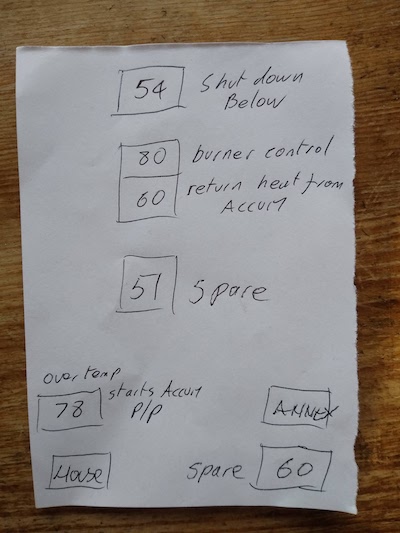 54 Shut down
Below
80 burner control
60 return heat from
Accum
57 Spare
over temp
78 starts Accum
P/P
ANNEX
House
Spare 60